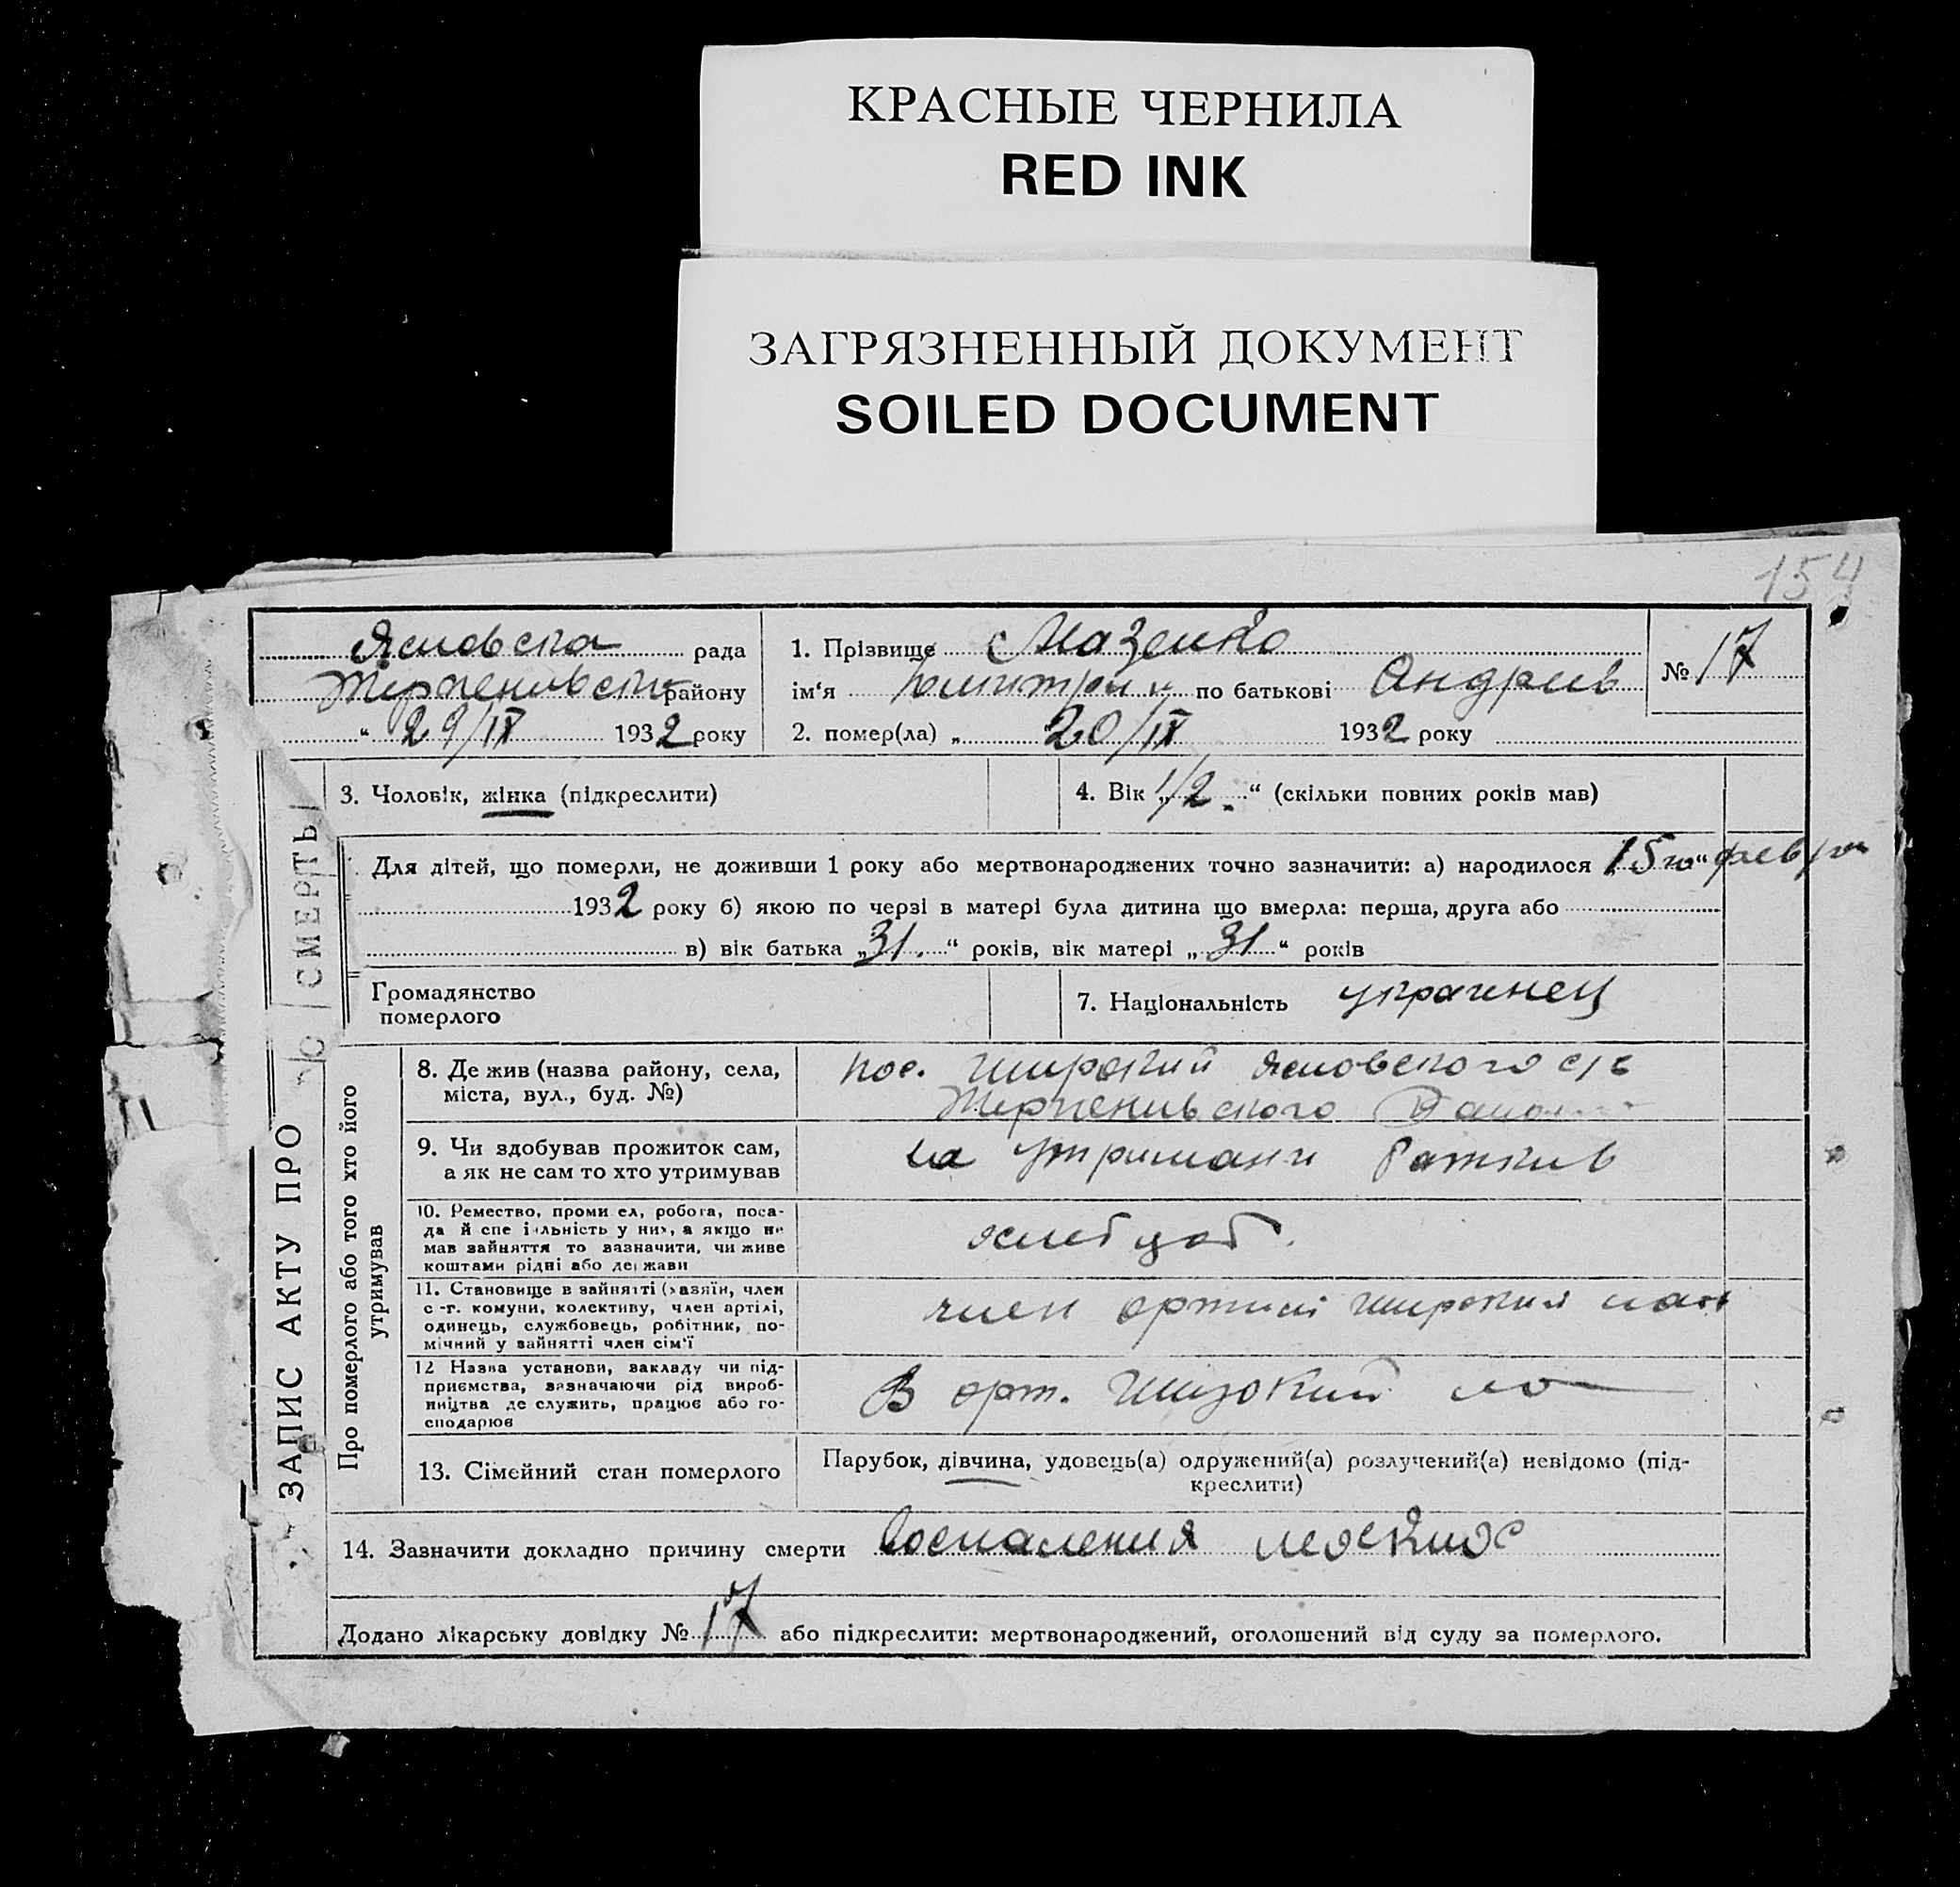 КРАСНЫЕ ЧЕРНИЛА
RED INK
ЗАГРЯЗНЕННЫЙ ДОКУМЕНТ
SOILED DOCUMENT
154
рада
району
„ 29/IX 1932 року
1. Прізвище Мазенко
ім‘я по батькові Андріив
№ 17
2. помер(ла) „ 20/IX 1932 року
ЗАПИС АКТУ ПРО СМЕРТЬ
3. Чоловік, жінка (підкреслити)
4. Вік „1/2“ (скільки повних років мав)
Для дітей, що померли, не доживши 1 року або мертвонароджених точно зазначити: а) народилося 15го“
1932 року б) якою по черзі в матері була дитина що вмерла: перша, друга або
в) вік батька „31.“ років, вік матері „31“ років
Громадянство
померлого
7. Національність украинец
Про померлого або того хто його
утримував
8. Де жив (назва району, села,
міста, вул., буд. №)
пос. Широкий
9. Чи здобував прожиток сам,
а як не сам то хто утримував
на утримани батькив
10. Ремество, промисел, робота, поса-
да й спеціальність у них, а якщо не
мав зайняття то зазначити, чи живе
коштами рідні або держави
хлебороб.
11. Становище в зайнятті (хазяїн, член
с.-г. комуни, колективу, член артілі,
одинець, службовець, робітник, по-
мічний у зайнятті член сім‘ї
член артили Широкий лан
12 Назва установи, закладу чи під-
приємства, зазначаючи рід вироб-
ництва де служить, працює або го-
сподарює
В арт. Широкий
13. Сімейний стан померлого
Парубок, дівчина, удовець(а) одружений(а) розлучений(а) невідомо (під-
креслити)
14. Зазначити докладно причину смерти воспаления
Додано лікарську довідку № 17 або підкреслити: мертвонароджений, оголошений від суду за померлого.